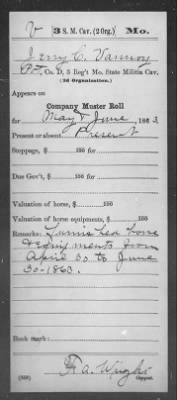 V | 3 S. M. Cav. (2 Org.) | Mo.
Jerry C. Vannoy
Pvt, Co. D, 3 Reg't Mo. State Militia Cav.
(2d Organization.)
Appears on
Company Muster Roll
for May & June, 1863
Present or absent Present
Stoppage, $ 100 for
Due Gov't, $ 100 for
Valuation of horse, $ 100
Valuation of horse equipments, $ 100
Remarks: Furnished horse
& equipments from
April 30 to June
30-1863.
Book mark:
F. A. Wright
(858) Copyist.